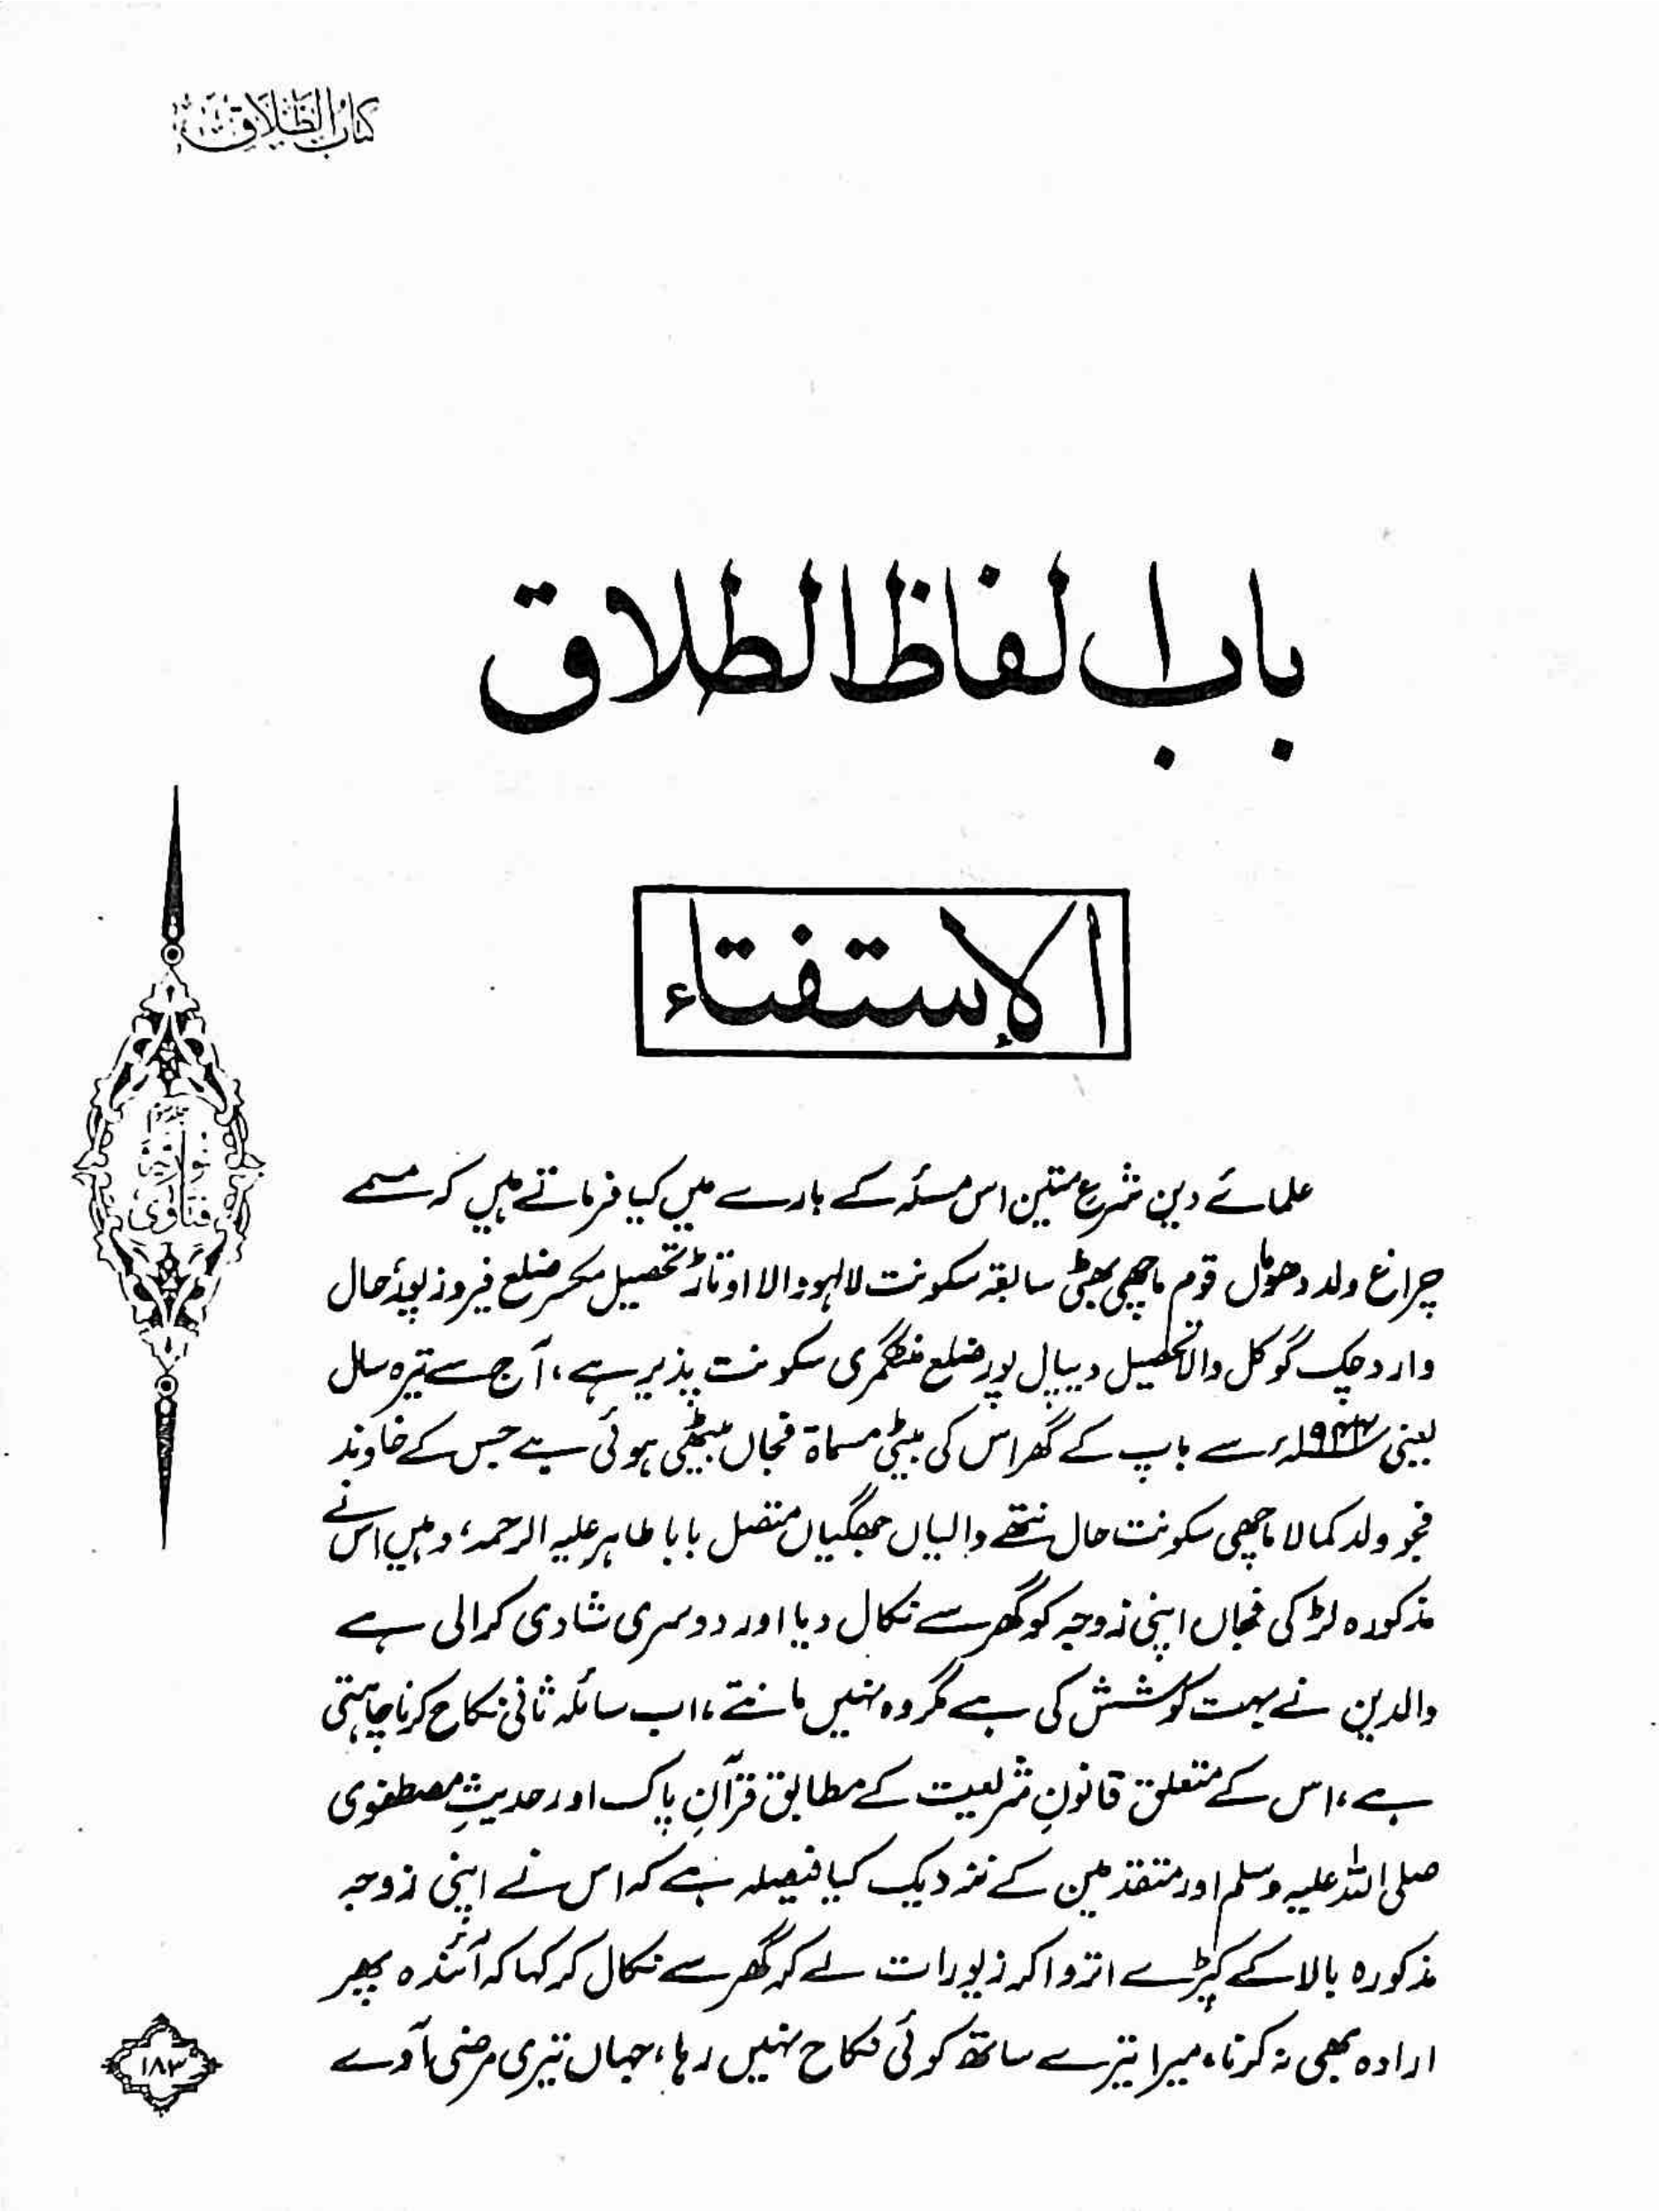 کتاب الطلاق
باب الفاظ الطلاق
الاستفتاء
علمائے دین شرع متین اس مسئلہ کے بارے میں کیا فرماتے ہیں کہ مسمے
چراغ ولد دھومال قوم ماچھی بھٹی سابقہ سکونت لالہو والا اوتاڑ تحصیل مکسر ضلع فیروز پور، حال
وارد چک گوکل والا تحصیل دیپال پور ضلع منٹگمری سکونت پذیر ہے، آج سے تیرہ سال
یعنی ۱۹۴۳ء سے باپ کے گھر اس کی بیٹی مسماۃ فجاں بیٹھی ہوئی ہے جس کے خاوند
فجو ولد کمالا ماچھی سکونت حال نتھے والیاں جھگیاں متصل بابا طاہر علیہ الرحمہ، وہیں اس نے
مذکورہ لڑکی فجاں اپنی زوجہ کو گھر سے نکال دیا اور دوسری شادی کرالی ہے
والدین نے بہت کوشش کی ہے مگر وہ نہیں مانتے، اب سائلہ ثانی نکاح کرنا چاہتی
ہے، اس کے متعلق قانونِ شریعت کے مطابق قرآنِ پاک اور حدیثِ مصطفوی
صلی اللہ علیہ وسلم اور متقدمین کے نزدیک کیا فیصلہ ہے کہ اس نے اپنی زوجہ
مذکورہ بالا کے کپڑے اتروا کر زیورات لے کر گھر سے نکال کر کہا کہ آئندہ پھر
ارادہ بھی نہ کرنا، میرا تیرے ساتھ کوئی نکاح نہیں رہا، جہاں تیری مرضی آوے
فتاویٰ نوریہ
۱۸۳